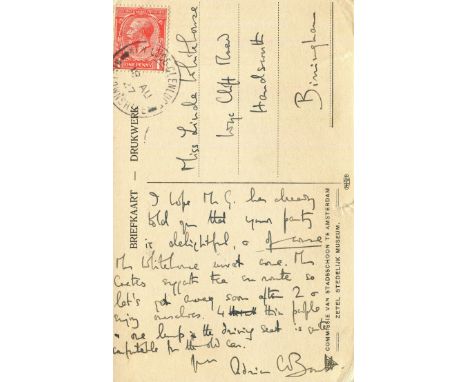 ONE PENNY
AU
27
BRIEFKAART — DRUKWERK
Miss Linda Whitehouse
Wye Cliff Road
Handsworth
Birmingham
COMMISSIE VAN STADSSCHOON TE AMSTERDAM
ZETEL STEDELIJK MUSEUM.
I hope Mr G. has already
told you that your party
is delightful, & of course
Mrs Whitehouse must come. Mrs
suggests tea en route so
let's get away soon after 2 &
enjoy ourselves. 4 thin people
& one lump in the driving seat is quite
comfortable for the old car.
Yours
Adrian